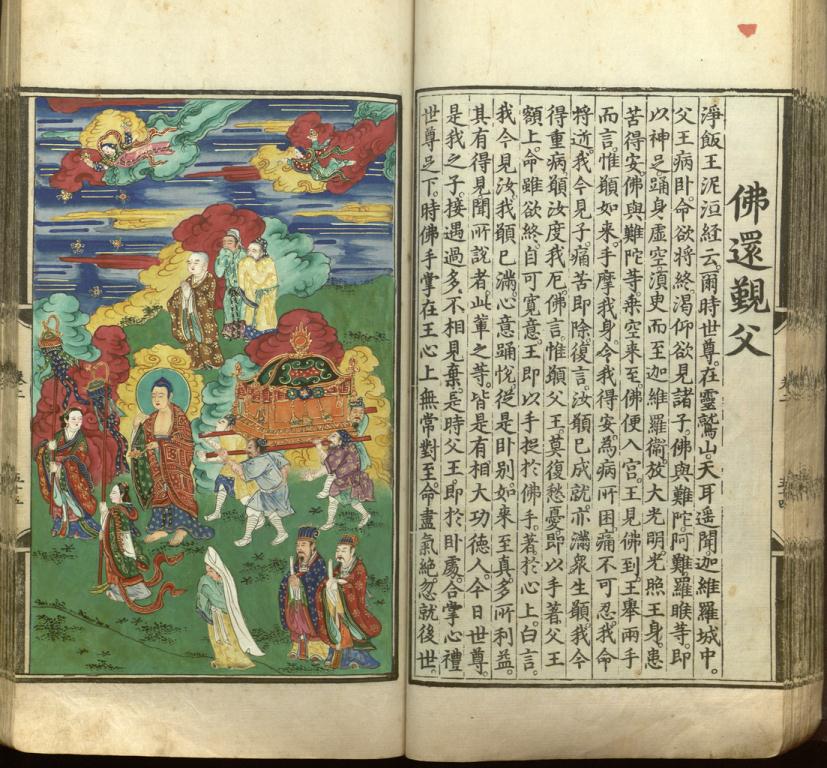 佛還覲父
淨飯王泥洹經云。爾時世尊。在靈鷲山。天耳遥聞。迦維羅城中。
父王病卧。命欲將終。渴仰欲見諸子。佛與難陀。阿難羅睺等。即
以神足。踊身虛空。須臾而至迦維羅衛。放大光明。光照王身。患
苦得安。佛與難陀等乗空來至。佛便入宫。王見佛到。王舉兩手
而言。惟願如來。手摩我身。令我得安。為病所困。痛不可忍。我命
將逝。我今見子。痛苦即除。復言。汝願已成就。亦滿衆生願。我今
得重病。願汝度我厄。佛言。惟願父王。莫復愁憂。即以手著父王
額上。命雖欲終。自可寬意。王即以手捉於佛手。著於心上。白言。
我今見汝。我願已滿。心意踊悅。從是卧別。如來至真。多所利益。
其有得見聞所說者。此軰之等。皆是有相大功德人。今日世尊。
是我之子。接遇過多。不相見棄。是時父王即於卧處。合掌心禮
世尊足下。時佛手掌在王心上。無常對至。命盡氣絶。忽就後世。